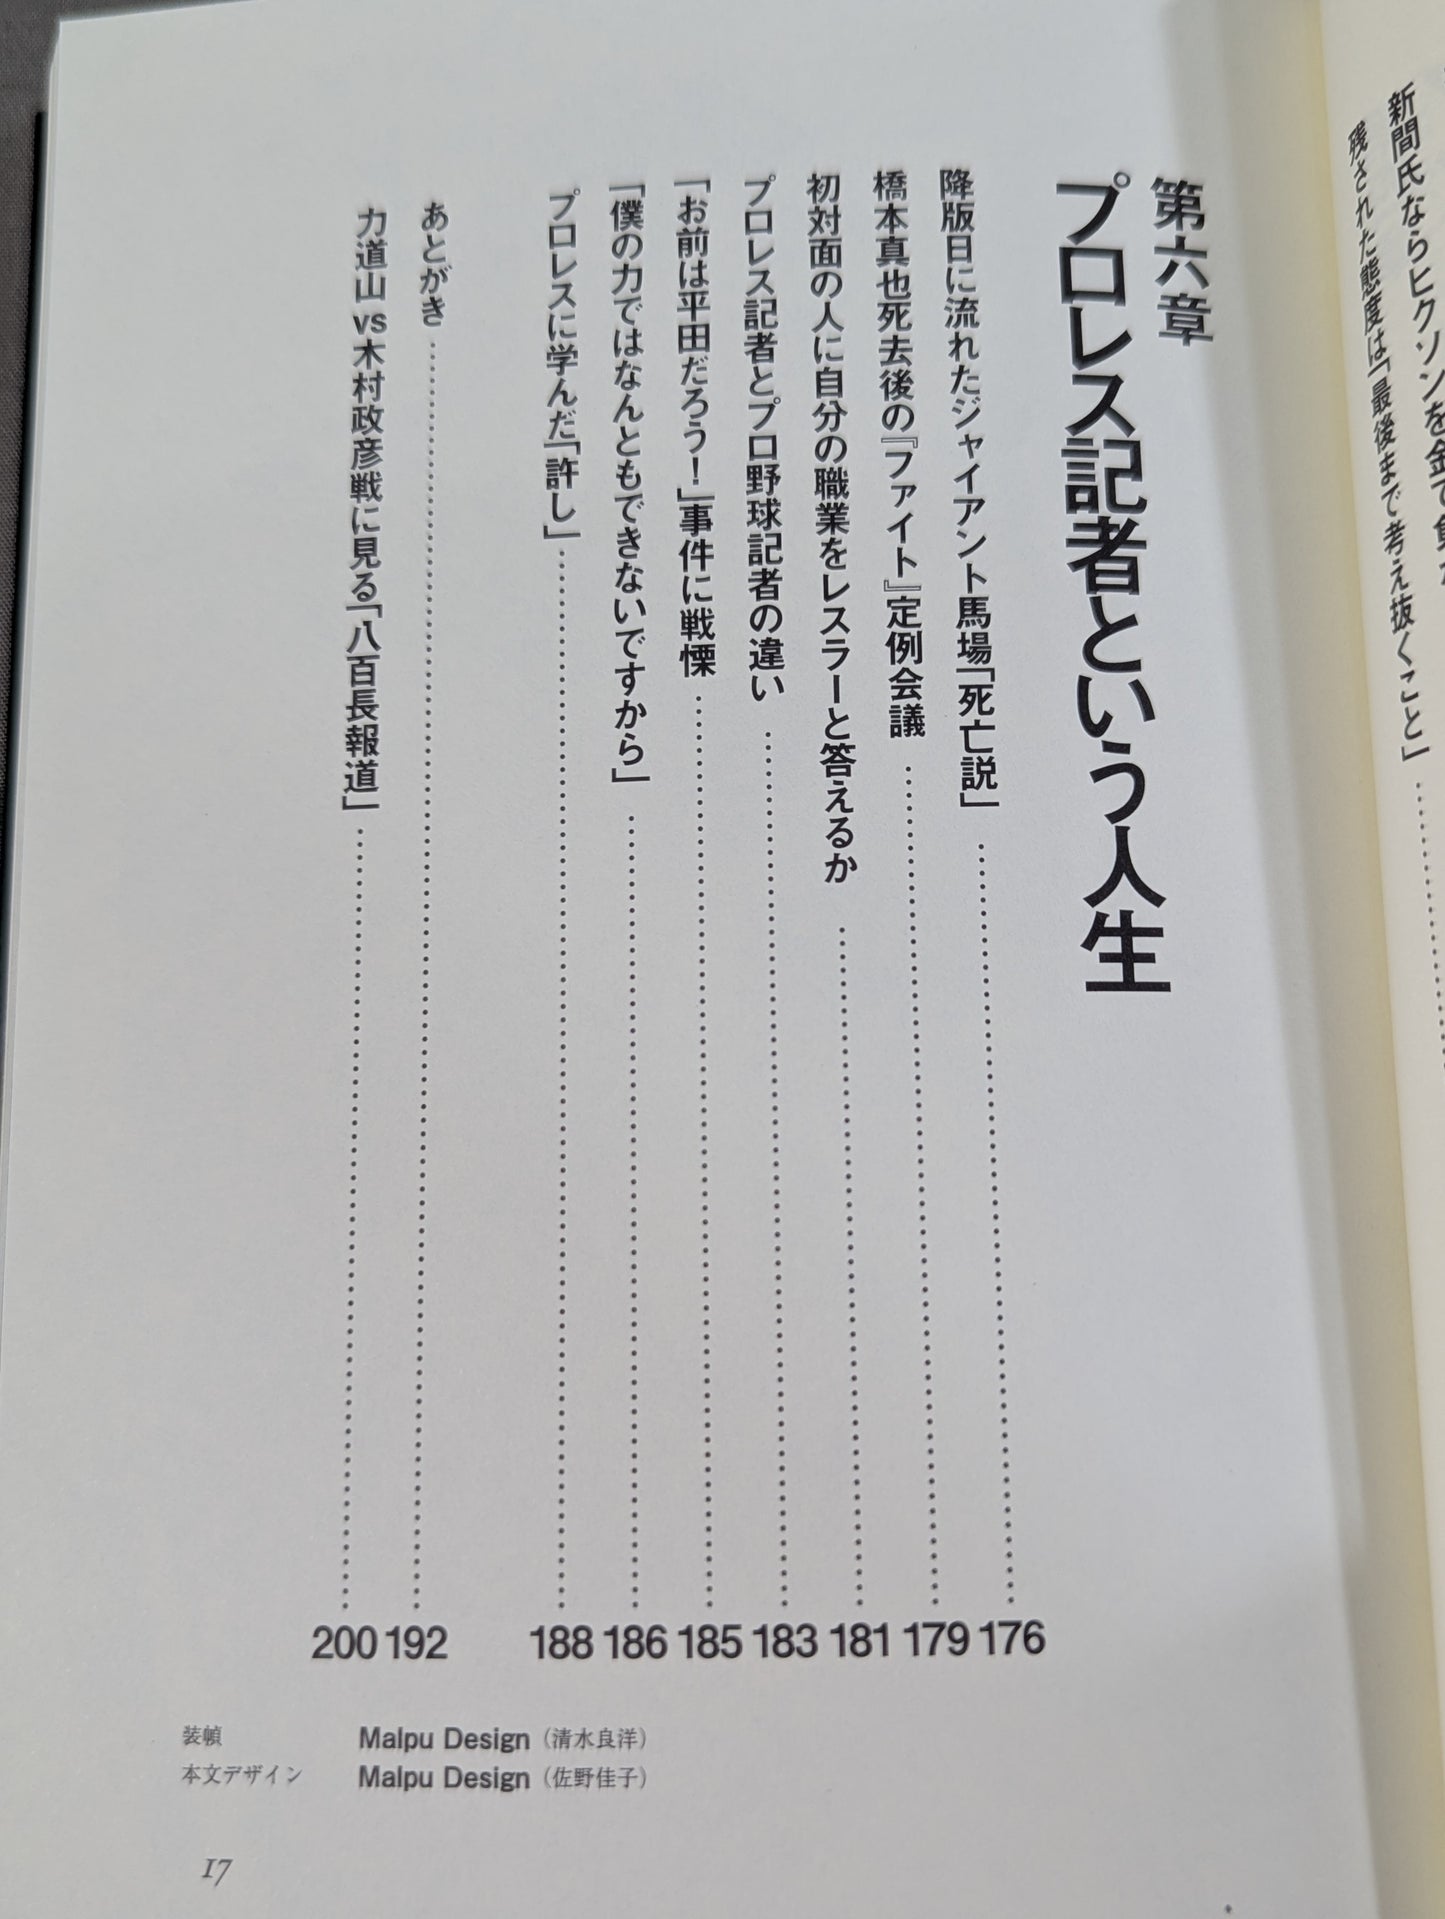 残された態度は「最後まで考え抜くこと」
第六章
プロレス記者という人生
降版日に流れたジャイアント馬場「死亡説」 176
橋本真也死去後の『ファイト』定例会議 179
初対面の人に自分の職業をレスラーと答えるか 181
プロレス記者とプロ野球記者の違い 183
「お前は平田だろう!」事件に戦慄 185
「僕の力ではなんともできないですから」 186
プロレスに学んだ「許し」 188
あとがき 192
力道山vs木村政彦戦に見る「八百長報道」 200
装幀 Malpu Design（清水良洋）
本文デザイン Malpu Design（佐野佳子）
17